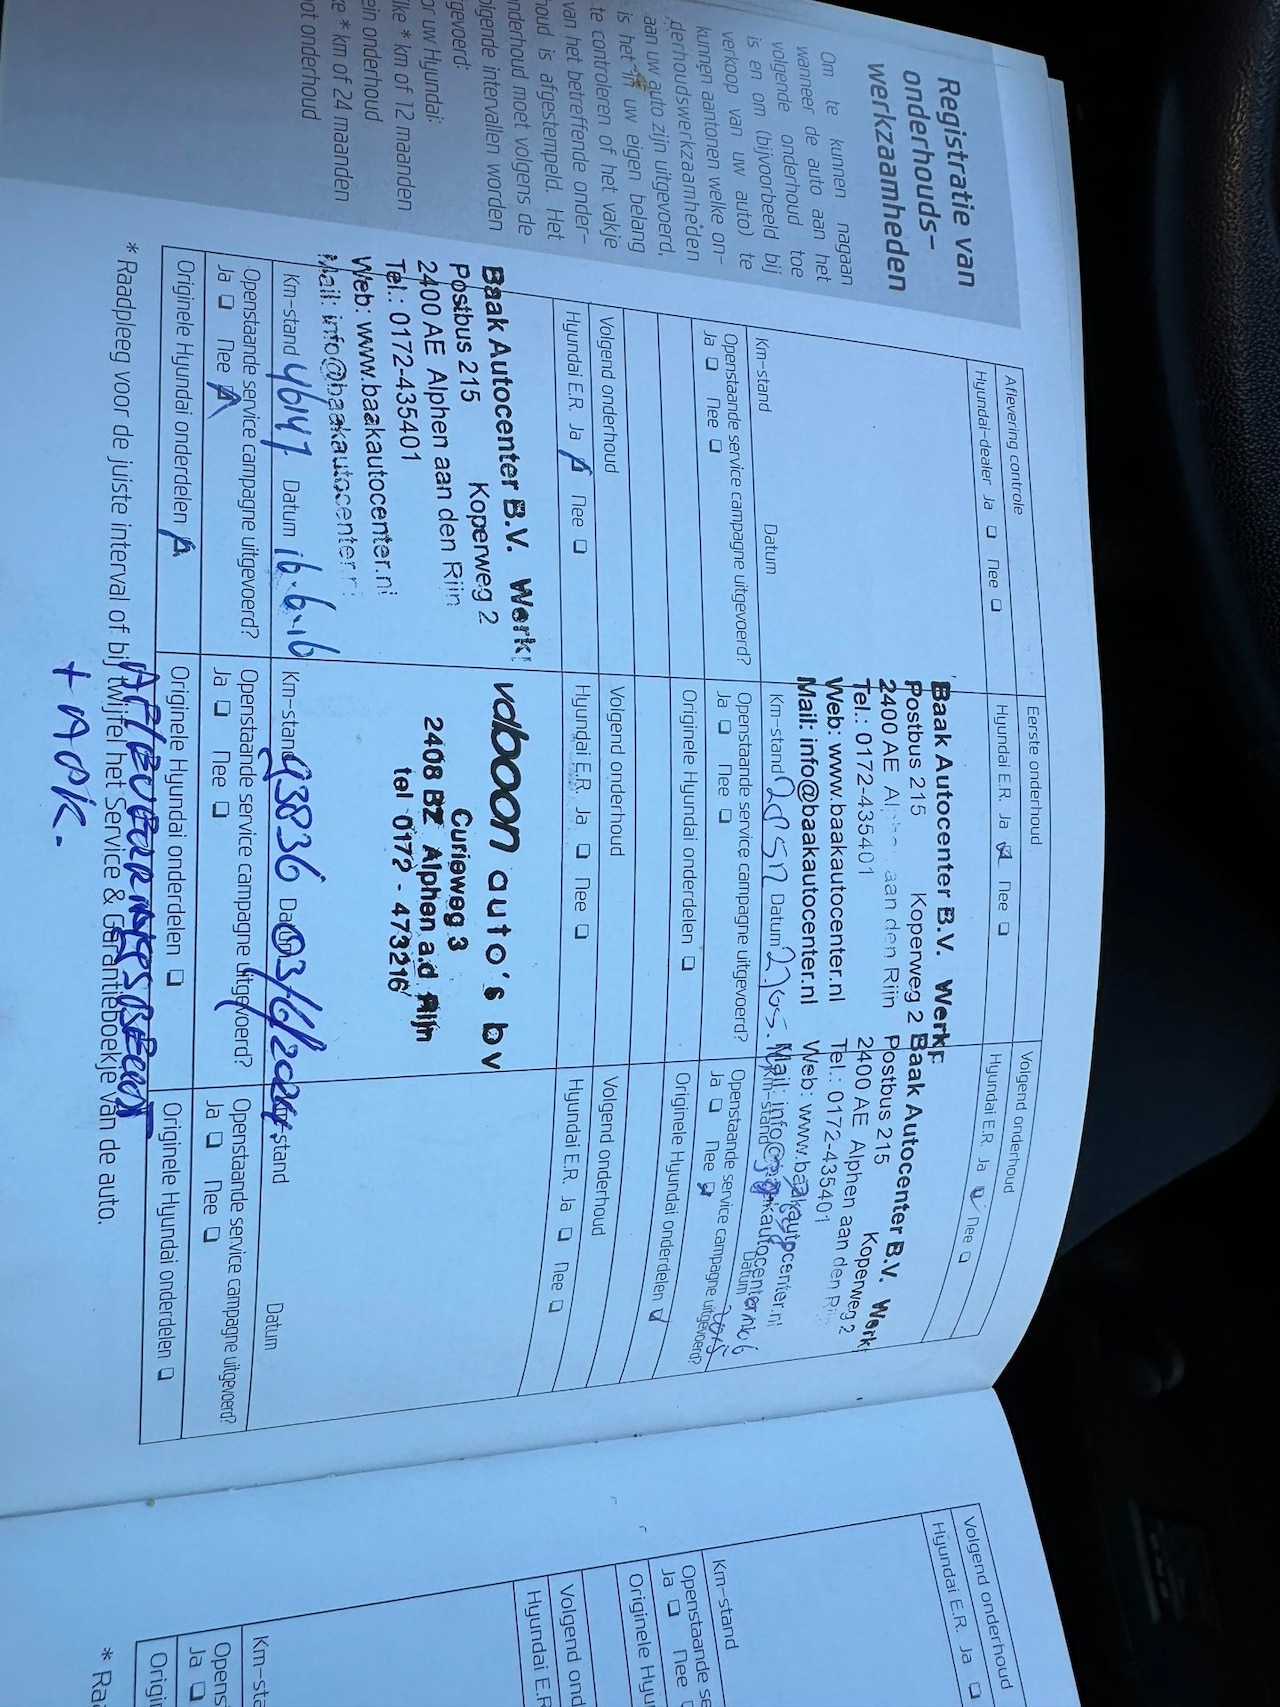 Registratie van
onderhouds-
werkzaamheden
Om te kunnen nagaan
wanneer de auto aan het
volgende onderhoud toe
is en om (bijvoorbeeld bij
verkoop van uw auto) te
kunnen aantonen welke on-
derhoudswerkzaamheden
aan uw auto zijn uitgevoerd,
is het in uw eigen belang
te controleren of het vakje
van het betreffende onder-
houd is afgestempeld. Het
nderhoud moet volgens de
olgende intervallen worden
gevoerd:
or uw Hyundai:
lke * km of 12 maanden
ein onderhoud
ke * km of 24 maanden
ot onderhoud
Aflevering controle
Hyundai-dealer Ja ❏ Nee ❏
Km-stand Datum
Openstaande service campagne uitgevoerd?
Ja ❏ Nee ❏
Eerste onderhoud
Hyundai E.R. Ja ❏ Nee ❏
Baak Autocenter B.V. Werk
Postbus 215 Koperweg 2
2400 AE Al aan den Rijn
Tel.: 0172-435401
Web: www.baakautocenter.nl
Mail: info@baakautocenter.nl
Km-stand Datum
Openstaande service campagne uitgevoerd?
Ja ❏ Nee ❏
Originele Hyundai onderdelen ❏
Volgend onderhoud
Hyundai E.R. Ja ❏ Nee ❏
Baak Autocenter B.V. Werk
Postbus 215 Koperweg 2
2400 AE Alphen aan den Rijn
Tel.: 0172-435401
Web: www.baakautocenter.nl
Mail: info@baakautocenter.nl
Km-stand Datum
Openstaande service campagne uitgevoerd?
Ja ❏ Nee ❏
Originele Hyundai onderdelen ❏
Volgend onderhoud
Hyundai E.R. Ja ❏ Nee ❏
Baak Autocenter B.V. Werk
Postbus 215 Koperweg 2
2400 AE Alphen aan den Rijn
Tel.: 0172-435401
Web: www.baakautocenter.nl
Mail: info@baakautocenter.n
Km-stand 46147 Datum 16.6.16
Openstaande service campagne uitgevoerd?
Ja ❏ Nee ❏
Originele Hyundai onderdelen ❏
Volgend onderhoud
Hyundai E.R. Ja ❏ Nee ❏
vdboon auto's bv
Curieweg 3
2408 BZ Alphen a.d. Rijn
tel 0172 - 473216
Km-stand 93836 Datum 03/6/2024
Openstaande service campagne uitgevoerd?
Ja ❏ Nee ❏
Originele Hyundai onderdelen ❏
Volgend onderhoud
Hyundai E.R. Ja ❏ Nee ❏
stand Datum
Openstaande service campagne uitgevoerd?
Ja ❏ Nee ❏
Originele Hyundai onderdelen ❏
AFLEVERINGSBEURT
+ APK.
* Raadpleeg voor de juiste interval of bij twijfel het Service & Garantieboekje van de auto.
Volgend onderhoud
Hyundai E.R. Ja ❏
Km-stand
Openstaande se
Ja ❏ Nee ❏
Originele Hyu
Volgend ond
Hyundai E.R
Km-sta
Openst
Ja ❏
Origin
* Raa